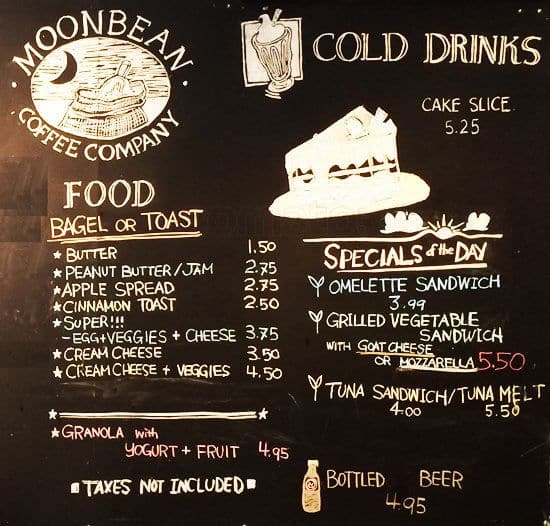 MOONBEAN
COFFEE COMPANY
COLD DRINKS
CAKE SLICE
5.25
FOOD
BAGEL OR TOAST
★ BUTTER 1.50
★ PEANUT BUTTER/JAM 2.75
★ APPLE SPREAD 2.75
★ CINNAMON TOAST 2.50
★ SUPER!!!
- EGG+VEGGIES + CHEESE 3.75
★ CREAM CHEESE 3.50
★ CREAM CHEESE + VEGGIES 4.50
★ GRANOLA with
YOGURT + FRUIT 4.95
TAXES NOT INCLUDED
SPECIALS of the DAY
OMELETTE SANDWICH
3.99
GRILLED VEGETABLE
SANDWICH
WITH GOAT CHEESE
OR MOZZARELLA 5.50
TUNA SANDWICH/TUNA MELT
4.00 5.50
BOTTLED BEER
4.95